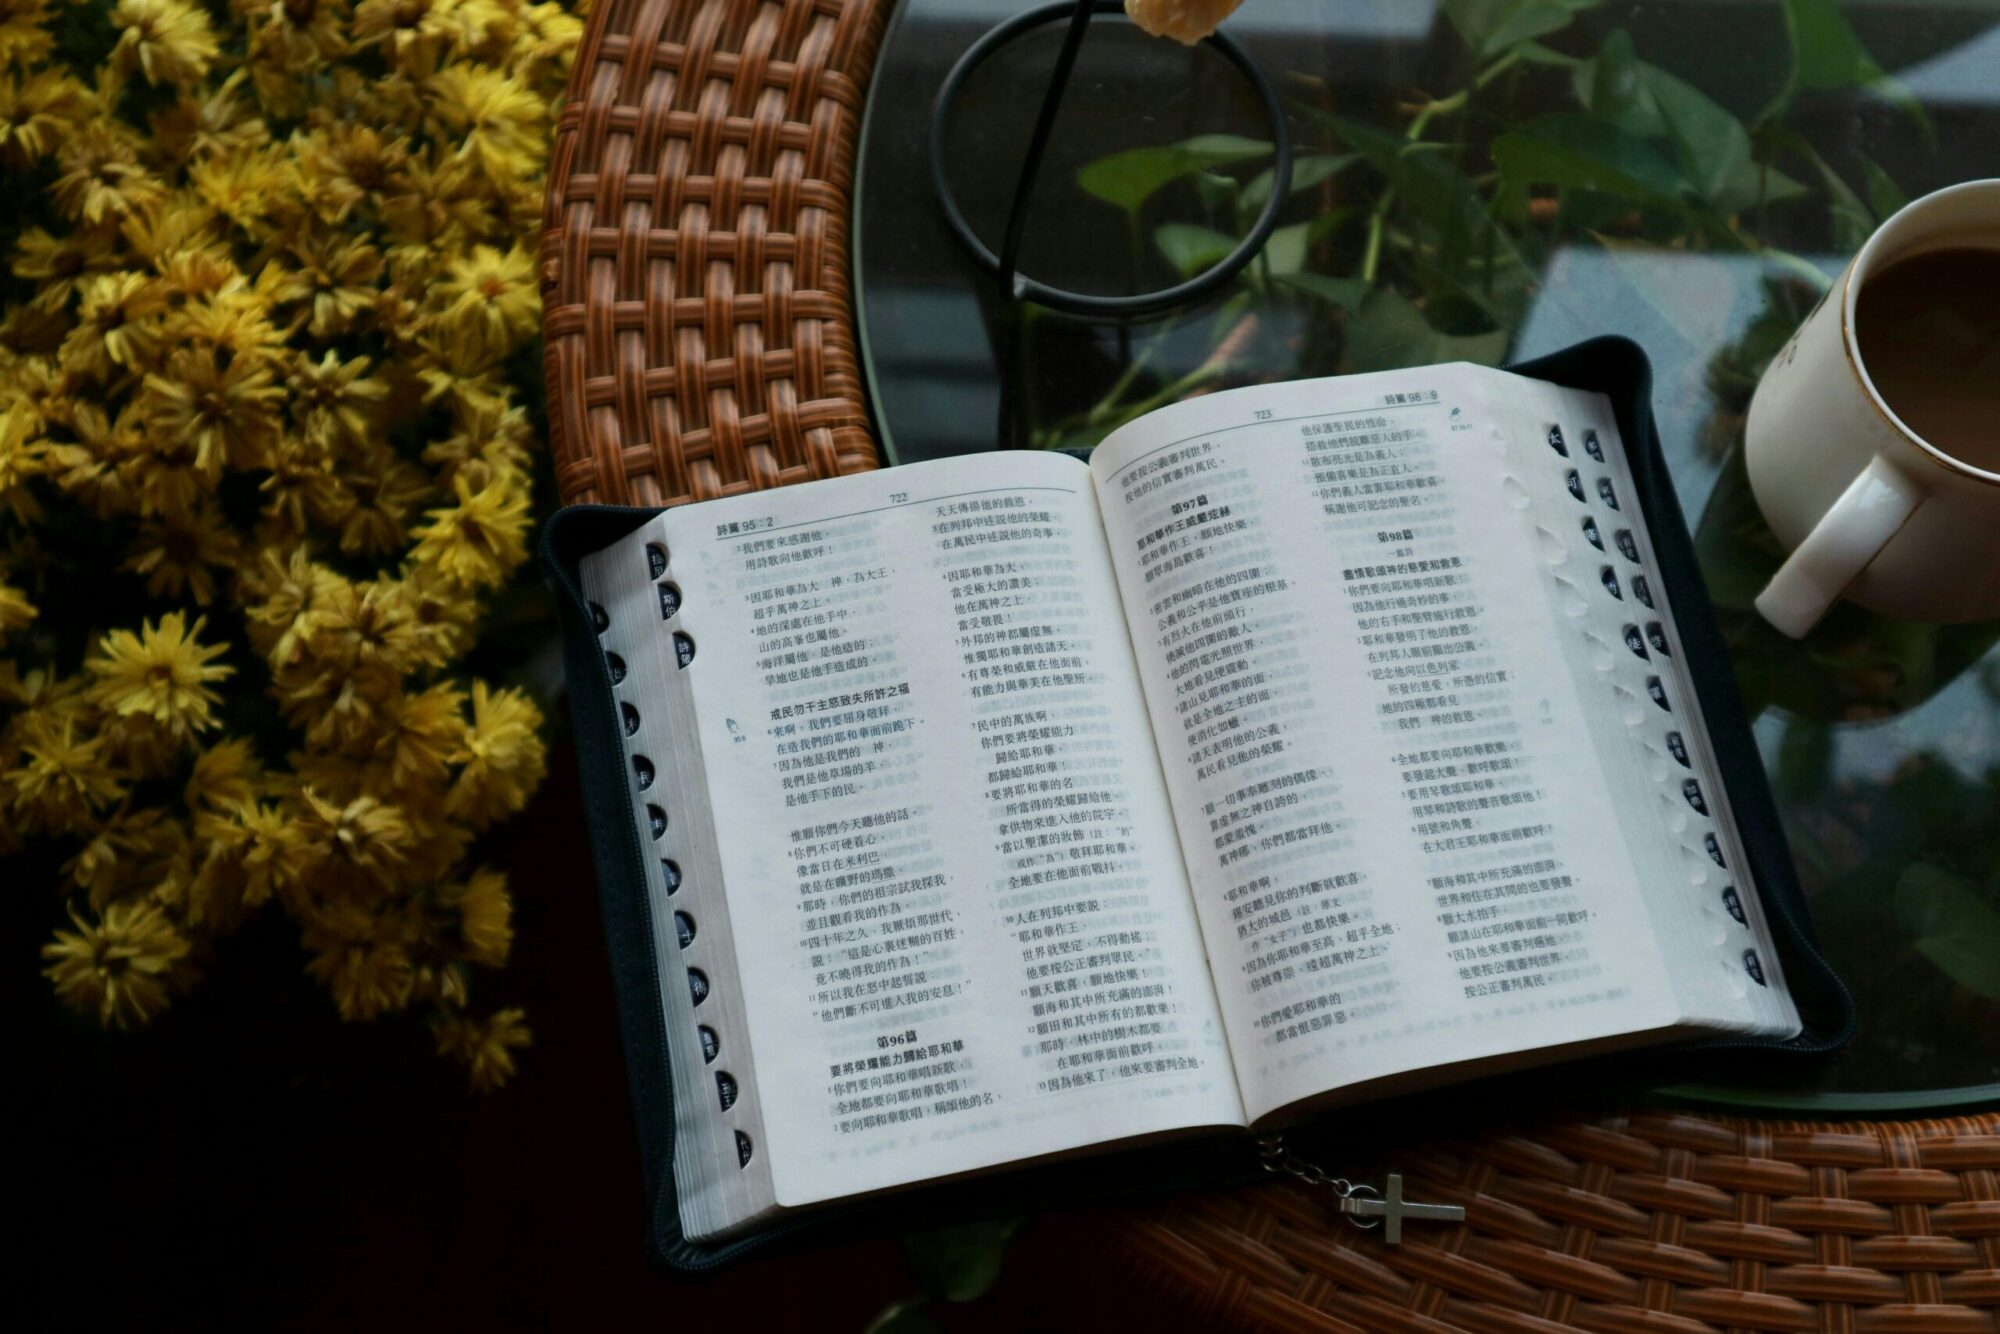 詩篇 95：2
722
2我們要來感謝他，
用詩歌向他歡呼！
3因耶和華為大　神，為大王，
超乎萬神之上。
4地的深處在他手中，
山的高峯也屬他。
5海洋屬他，是他造的；
旱地也是他手造成的。
戒民勿干主怒致失所許之福
6來啊，我們要屈身敬拜，
在造我們的耶和華面前跪下。
7因為他是我們的　神，
我們是他草場的羊，
是他手下的民。
惟願你們今天聽他的話。
8“你們不可硬着心，
像當日在米利巴，
就是在曠野的瑪撒。
9那時，你們的祖宗試我探我，
並且觀看我的作為。
10四十年之久，我厭煩那世代，
說：‘這是心裏迷糊的百姓，
竟不曉得我的作為！’
11所以我在怒中起誓說：
‘他們斷不可進入我的安息！’”
第96篇
要將榮耀能力歸給耶和華
1你們要向耶和華唱新歌，
全地都要向耶和華歌唱！
2要向耶和華歌唱，稱頌他的名，
天天傳揚他的救恩。
3在列邦中述說他的榮耀，
在萬民中述說他的奇事。
4因耶和華為大，
當受極大的讚美；
他在萬神之上，
當受敬畏！
5外邦的神都屬虛無，
惟獨耶和華創造諸天。
6有尊榮和威嚴在他面前，
有能力與華美在他聖所。
7民中的萬族啊，
你們要將榮耀能力
歸給耶和華，
都歸給耶和華！
8要將耶和華的名
所當得的榮耀歸給他，
拿供物來進入他的院宇。
9當以聖潔的妝飾（註：“的”
或作“為”）敬拜耶和華，
全地要在他面前戰抖。
10人在列邦中要說：
“耶和華作王，
世界就堅定，不得動搖；
他要按公正審判眾民。
11願天歡喜，願地快樂！
願海和其中所充滿的澎湃！
12願田和其中所有的都歡樂！
那時，林中的樹木都要
在耶和華面前歡呼。
13因為他來了，他來要審判全地。
723
詩篇 98：9
他要按公義審判世界，
按他的信實審判萬民。
第97篇
耶和華作王威嚴炫赫
1耶和華作王，願地快樂，
願眾海島歡喜！
2密雲和幽暗在他的四圍；
公義和公平是他寶座的根基。
3有烈火在他前頭行，
燒滅他四圍的敵人。
4他的閃電光照世界，
大地看見便震動。
5諸山見耶和華的面，
就是全地之主的面，
便消化如蠟。
6諸天表明他的公義，
萬民看見他的榮耀。
7願一切事奉雕刻的偶像、
靠虛無之神自誇的，
都蒙羞愧。
萬神哪，你們都當拜他。
8耶和華啊，
錫安聽見你的判斷就歡喜，
猶大的城邑（註：原文
作“女子”）也都快樂。
9因為你耶和華至高，超乎全地；
你被尊崇，遠超萬神之上。
10你們愛耶和華的
都當恨惡罪惡。
他保護聖民的性命，
搭救他們脫離惡人的手。
11散布亮光是為義人；
預備喜樂是為正直人。
12你們義人當靠耶和華歡喜，
稱謝他可記念的聖名。
第98篇
一篇詩
盡情歌頌神的慈愛和救恩
1你們要向耶和華唱新歌！
因為他行過奇妙的事，
他的右手和聖臂施行救恩。
2耶和華發明了他的救恩，
在列邦人眼前顯出公義；
3記念他向以色列家
所發的慈愛，所憑的信實；
地的四極都看見
我們　神的救恩。
4全地都要向耶和華歡樂，
要發起大聲，歡呼歌頌！
5要用琴歌頌耶和華，
用琴和詩歌的聲音歌頌他！
6用號和角聲，
在大君王耶和華面前歡呼！
7願海和其中所充滿的澎湃，
世界和住在其間的也要發聲。
8願大水拍手，
願諸山在耶和華面前一同歡呼。
9因為他來要審判遍地。
他要按公義審判世界，
按公正審判萬民。